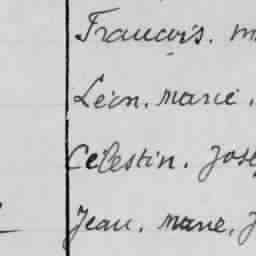 François. m
Léon. marie.
Célestin. Jose
Jean. marie. J